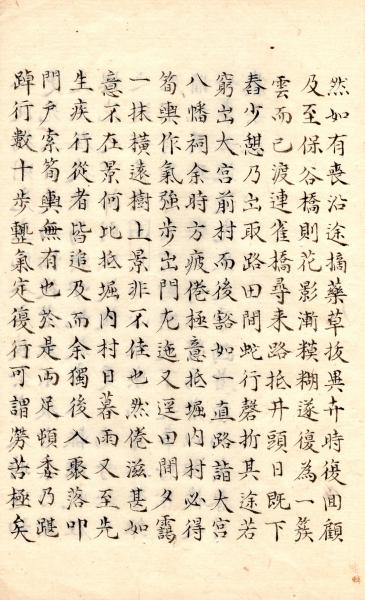 然如有喪沿途摘藥草拔異卉時復回顧
及至保谷橋則花影漸模糊遂復為一簇
雲而已渡連雀橋尋来路抵井頭日既下
舂少憇乃出取路田間蛇行磬折其途若
窮出大宮前村而後豁如一直路詣大宮
八幡祠余時方疲倦極意抵堀内村必得
筍輿作氣強歩出門左迤又逕田間夕靄
一抹橫遠樹上景非不佳也然倦滋甚如
意不在景何比抵堀内村日暮雨又至先
生疾行從者皆追及而余獨後入聚落叩
門戶索筍輿無有也於是両足頓委乃踸
踔行數十歩蹔氣定復行可謂勞苦極矣